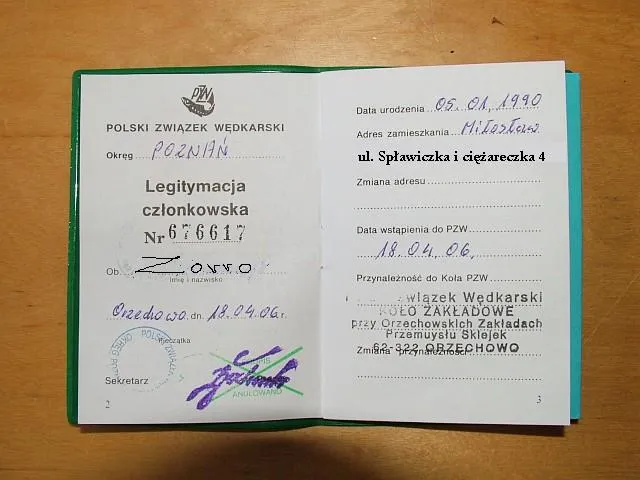 PZW
POLSKI ZWIĄZEK WĘDKARSKI
Okręg POZNAŃ
Legitymacja
członkowska
Nr 676617
Ob. Zorro
Imię i nazwisko
Orzechowo dn. 18.04.06 r.
Pieczątka
Sekretarz
ANULOWANO
2
Data urodzenia 05.01.1990
Adres zamieszkania Miłosław
ul. Spławiczka i ciężareczka 4
Zmiana adresu
Data wstąpienia do PZW
18.04.06.
Przynależność do Koła PZW
Związek Wędkarski
KOŁO ZAKŁADOWE
przy Orzechowskich Zakładach
Przemysłu Sklejek
Zmiana przynależności
62-322 ORZECHOWO
3